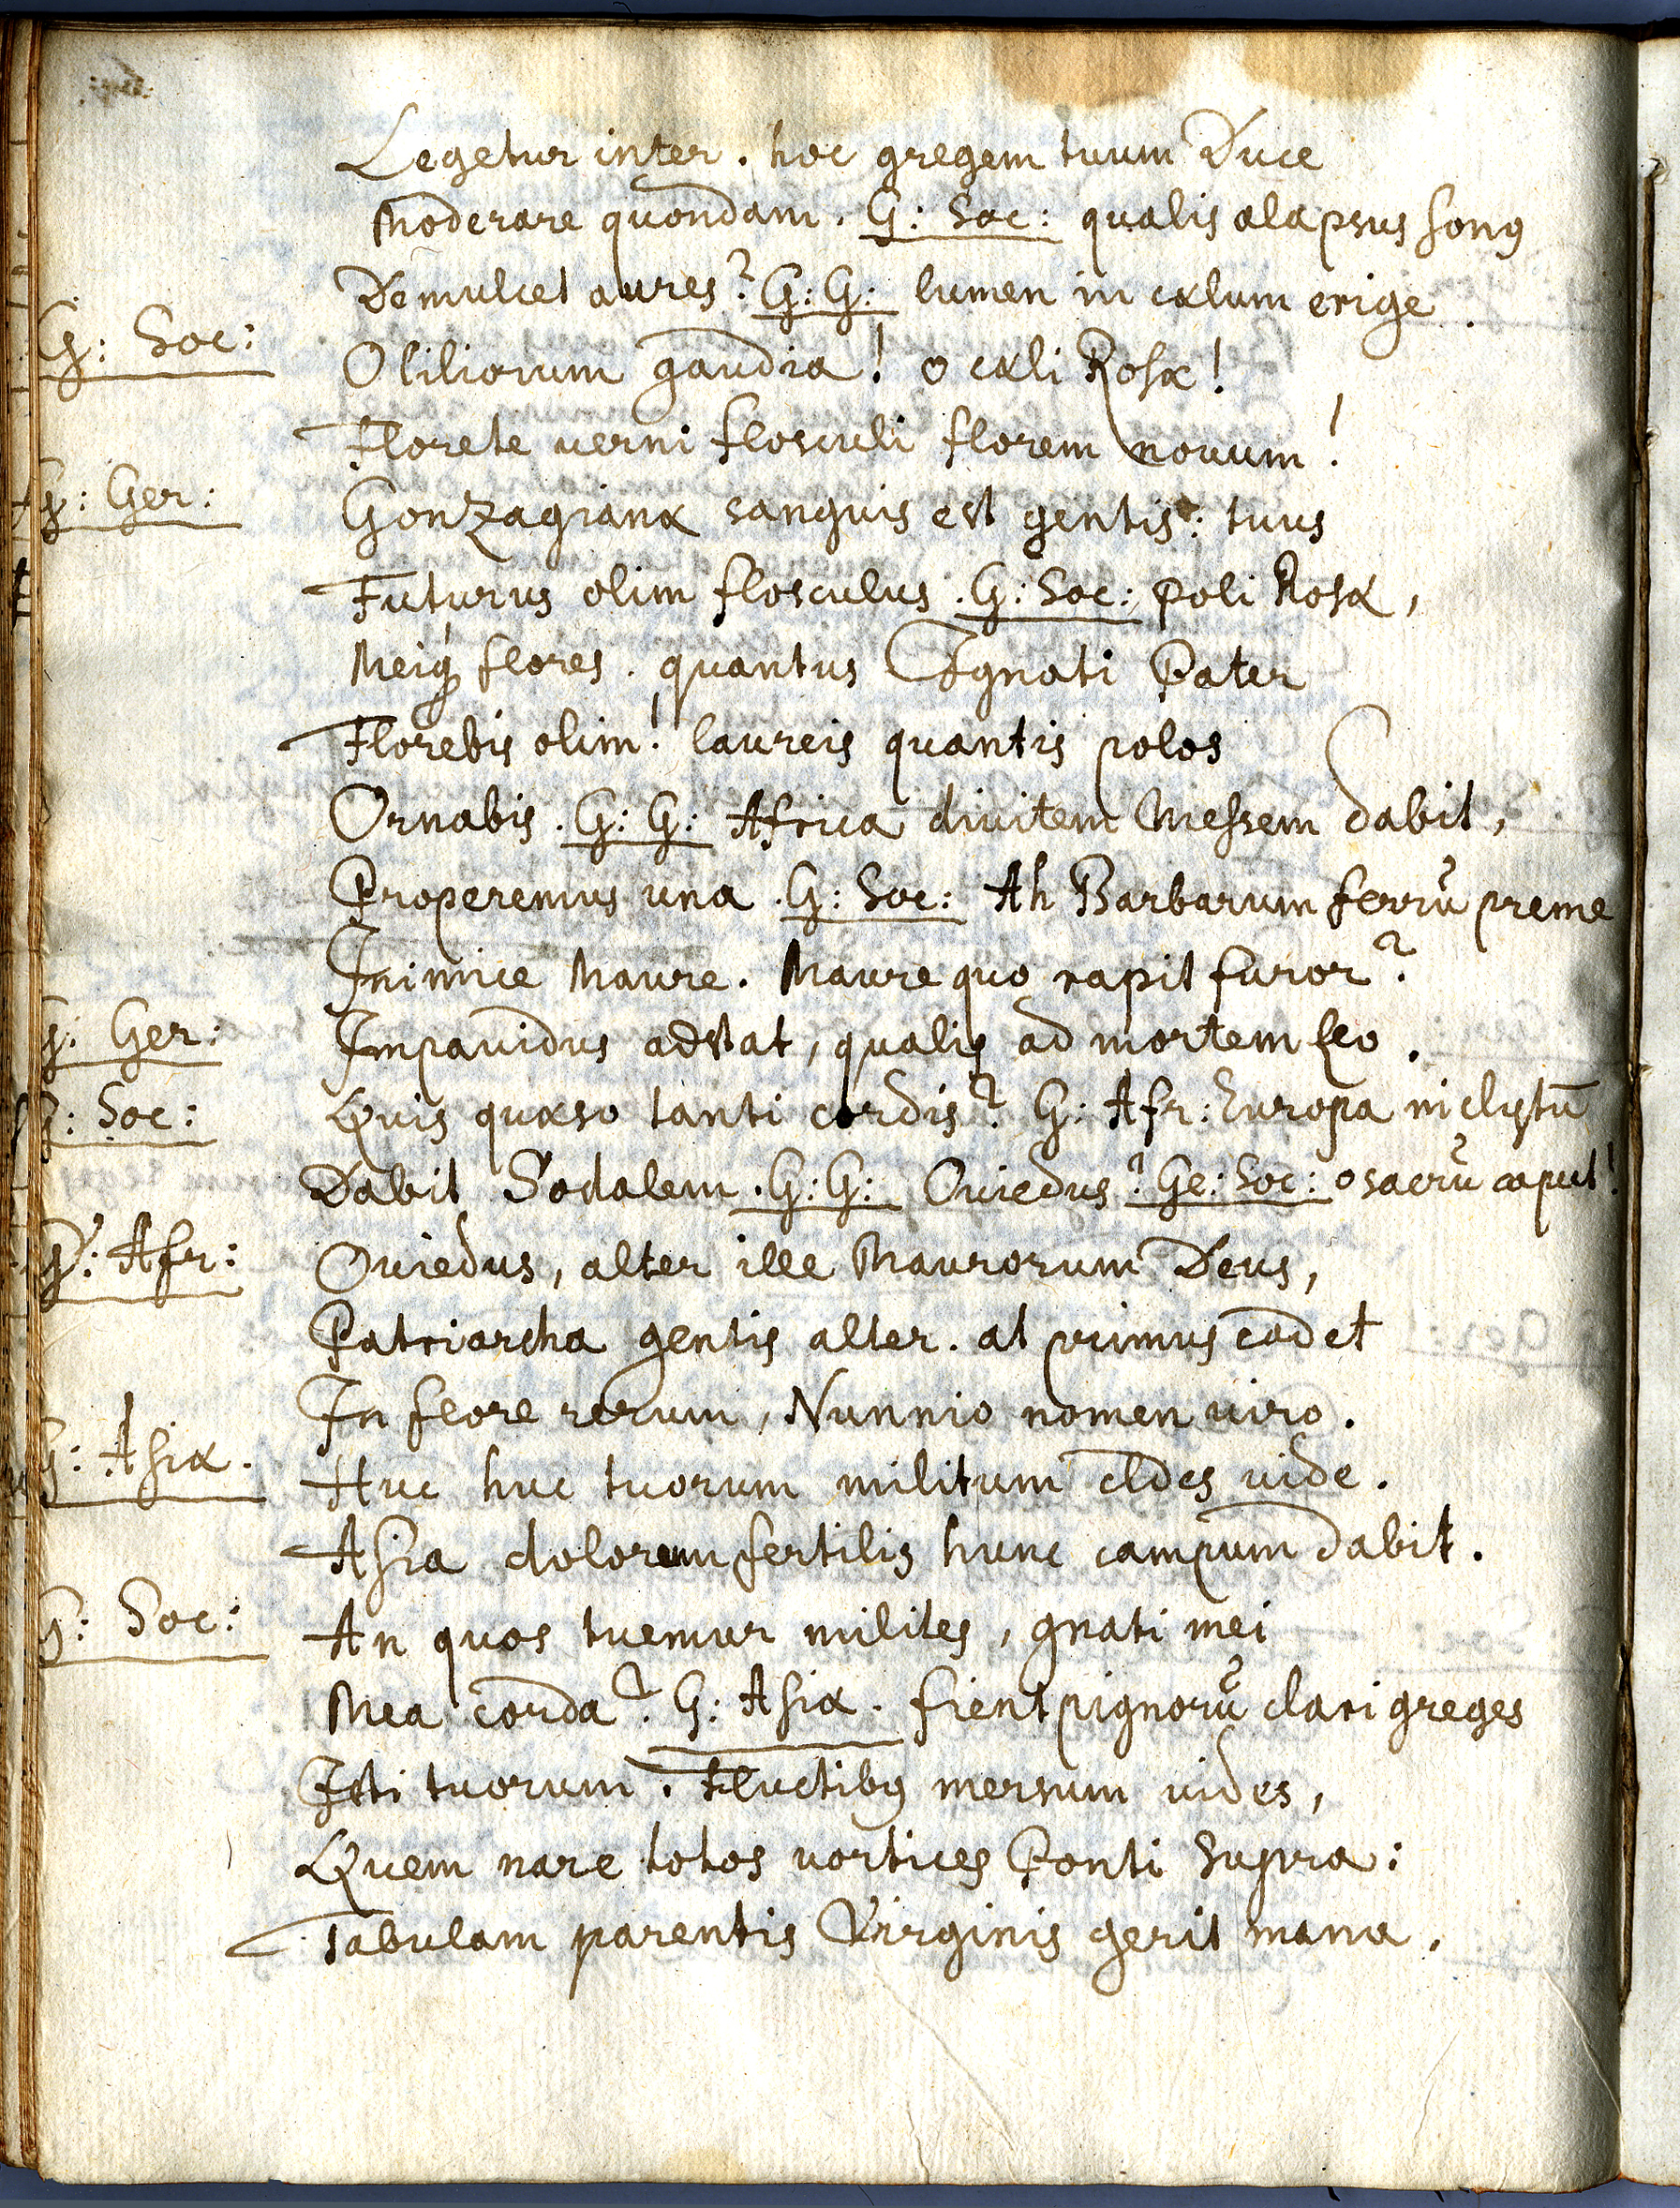 Legetur inter. hoc gregem tuum Duce
Moderare quondam. G: Soc: qualis alapsus sonꝰ
Demulcet aures? G: G: lumen in cælum erige
G: Soc: O liliorum gaudia! o cæli Rosæ!
Florete verni flosculi florem nouum!
G: Ger: Gonzagianæ sanguis est gentis: tuus
Futurus olim flosculus. G: Soc: poli Rosæ,
Meiq́ flores. quantus Ignati Pater
Florebis olim! laureis quantis polos
Ornabis. G: G: Africa diuitem Messem dabit,
Properemus una. G: Soc: Ah Barbarum ferrũ preme
Inimice Maure. Maure quo rapit furor?
G: Ger: Impauidus adstat, qualis ad mortem leo.
G: Soc: Quis quæso tanti cordis? G: Afr: Europa inclytũ
Dabit Sodalem. G: G: Ouiedus? Ge: Soc: o sacrũ caput!
G: Afr: Ouiedus, alter ille Maurorum Deus,
Patriarcha gentis alter. at primus cadet
In flore rerum, Nunnio nomen uiro.
G: Asiæ. Huc huc tuorum militum cædes uide.
Asia dolorum fertilis hunc campum dabit.
G: Soc: An quos tuemur milites, gnati mei
Mea corda? G: Asiæ. fient pignorũ clari greges
Isti tuorum. Fluctibꝰ mersum uides,
Quem nare totos uortices Ponti supra:
Tabulam parentis Virginis gerit manu.